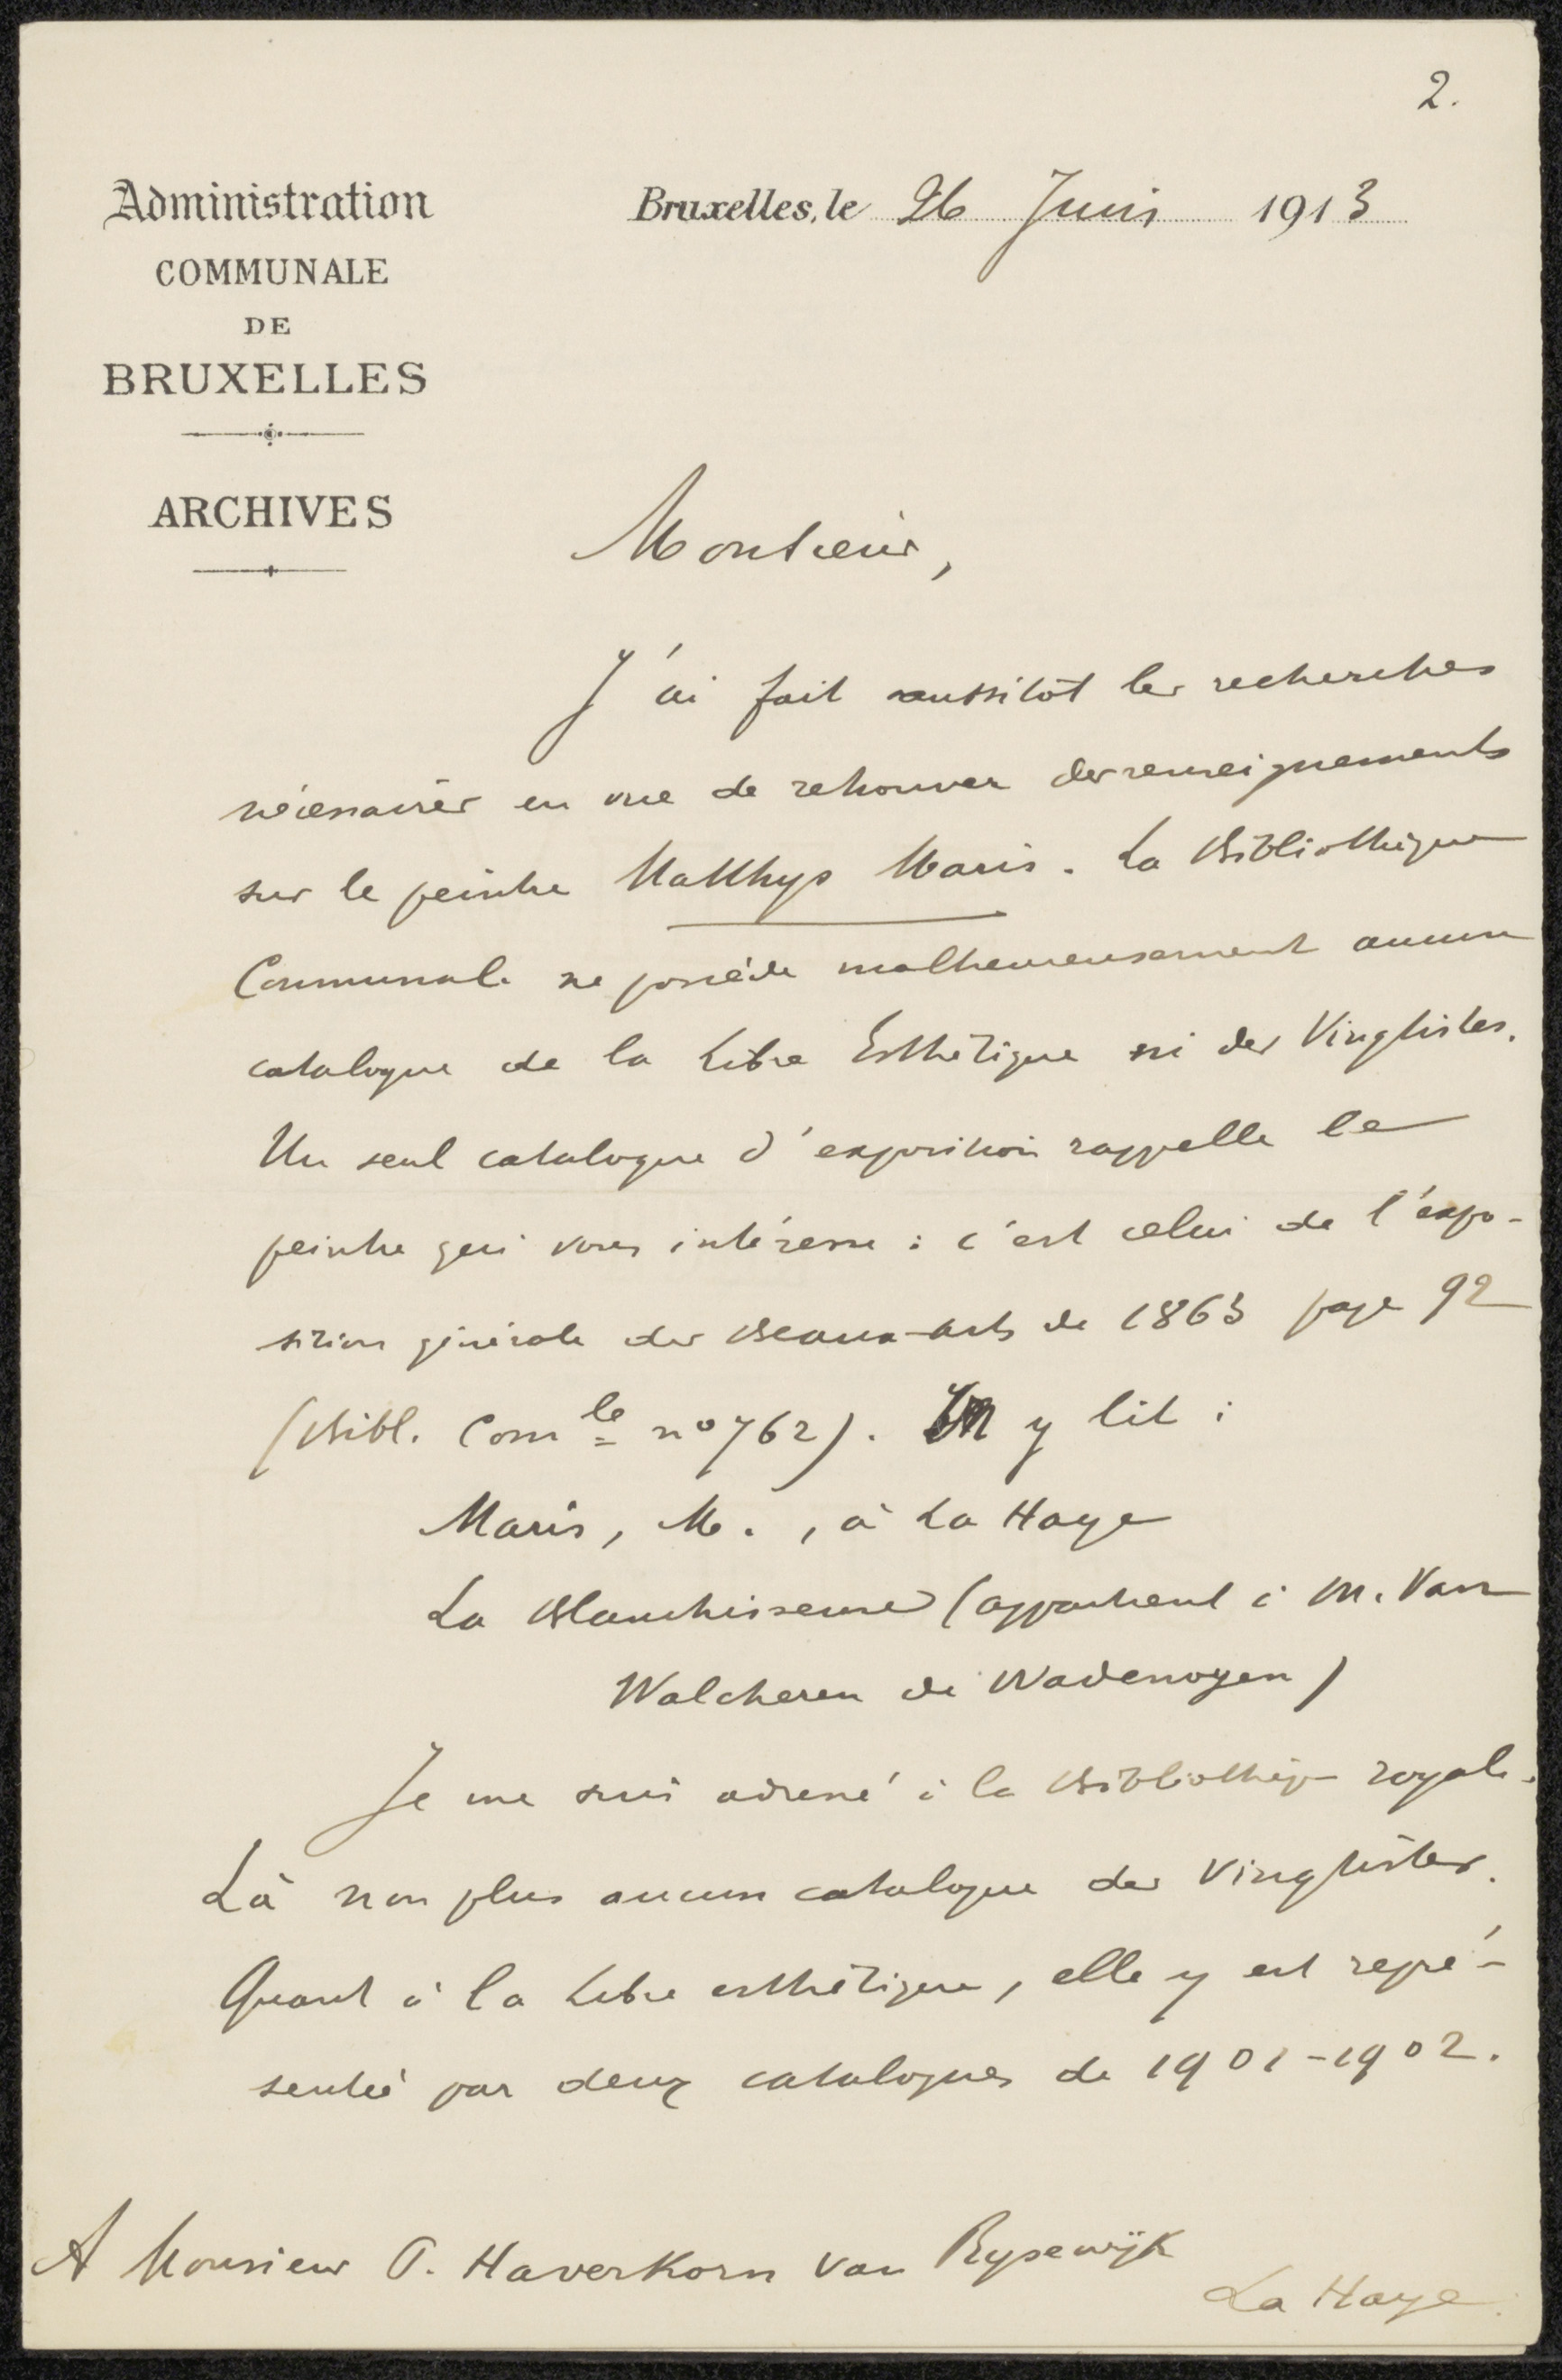 2.
Administration
COMMUNALE
DE
BRUXELLES
ARCHIVES
Bruxelles, le 26 Juin 1913
Monsieur,
J'ai fait aussitôt les recherches
nécessaires en vue de retrouver des renseignements
sur le peintre Matthys Maris. La Bibliothèque
Communale ne possède malheureusement aucun
catalogue de la Libre Esthétique ni des Vingtistes.
Un seul catalogue d'exposition rappelle le
peintre qui vous intéresse : c'est celui de l'expo-
sition générale des Beaux-arts de 1863 page 92
(Bibl. Comle n° 762). On y lit :
Maris, M., à La Haye
La Blanchisseuse (appartient à M. Van
Walcheren de Wadenoyen)
Je me suis adressé à la Bibliothèque royale.
Là non plus aucun catalogue des Vingtistes.
Quant à la Libre esthétique, elle y est repré-
sentée par deux catalogues de 1901-1902.
A Monsieur P. Haverkorn van Rysewijk
La Haye